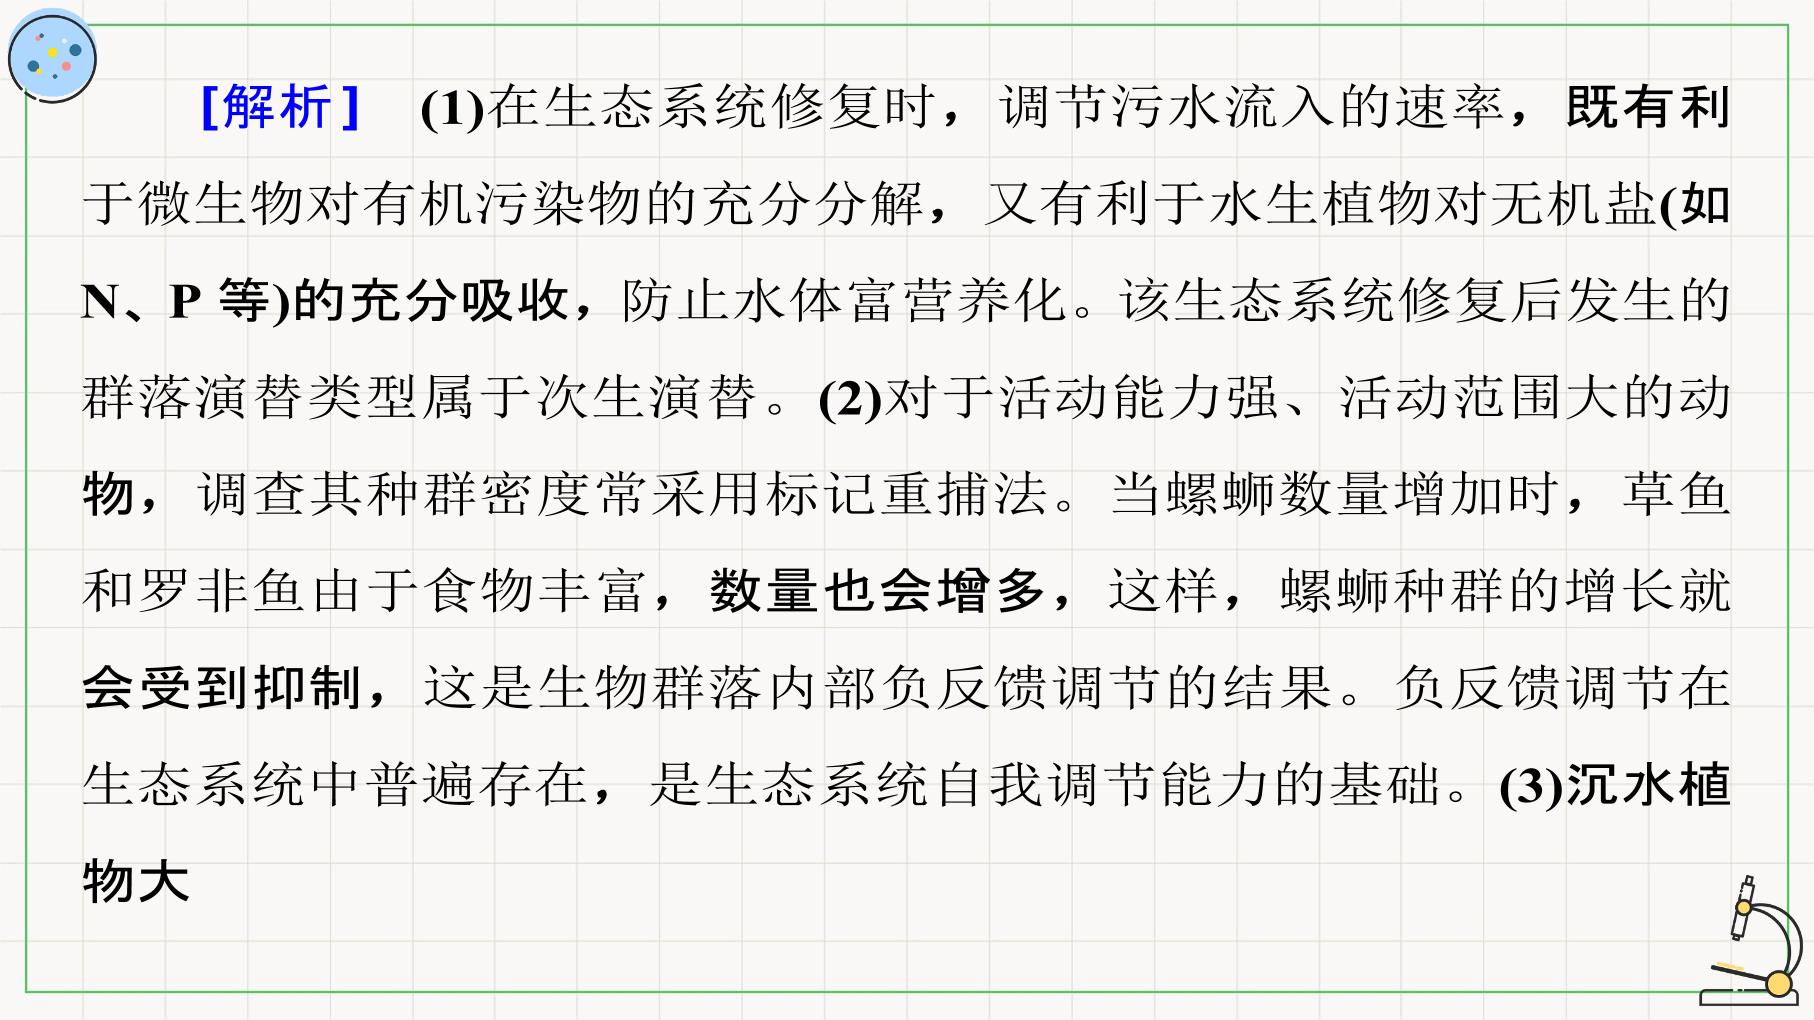 [解析] (1)在生态系统修复时，调节污水流入的速率，既有利
于微生物对有机污染物的充分分解，又有利于水生植物对无机盐(如
N、P 等)的充分吸收，防止水体富营养化。该生态系统修复后发生的
群落演替类型属于次生演替。(2)对于活动能力强、活动范围大的动
物，调查其种群密度常采用标记重捕法。当螺蛳数量增加时，草鱼
和罗非鱼由于食物丰富，数量也会增多，这样，螺蛳种群的增长就
会受到抑制，这是生物群落内部负反馈调节的结果。负反馈调节在
生态系统中普遍存在，是生态系统自我调节能力的基础。(3)沉水植
物大